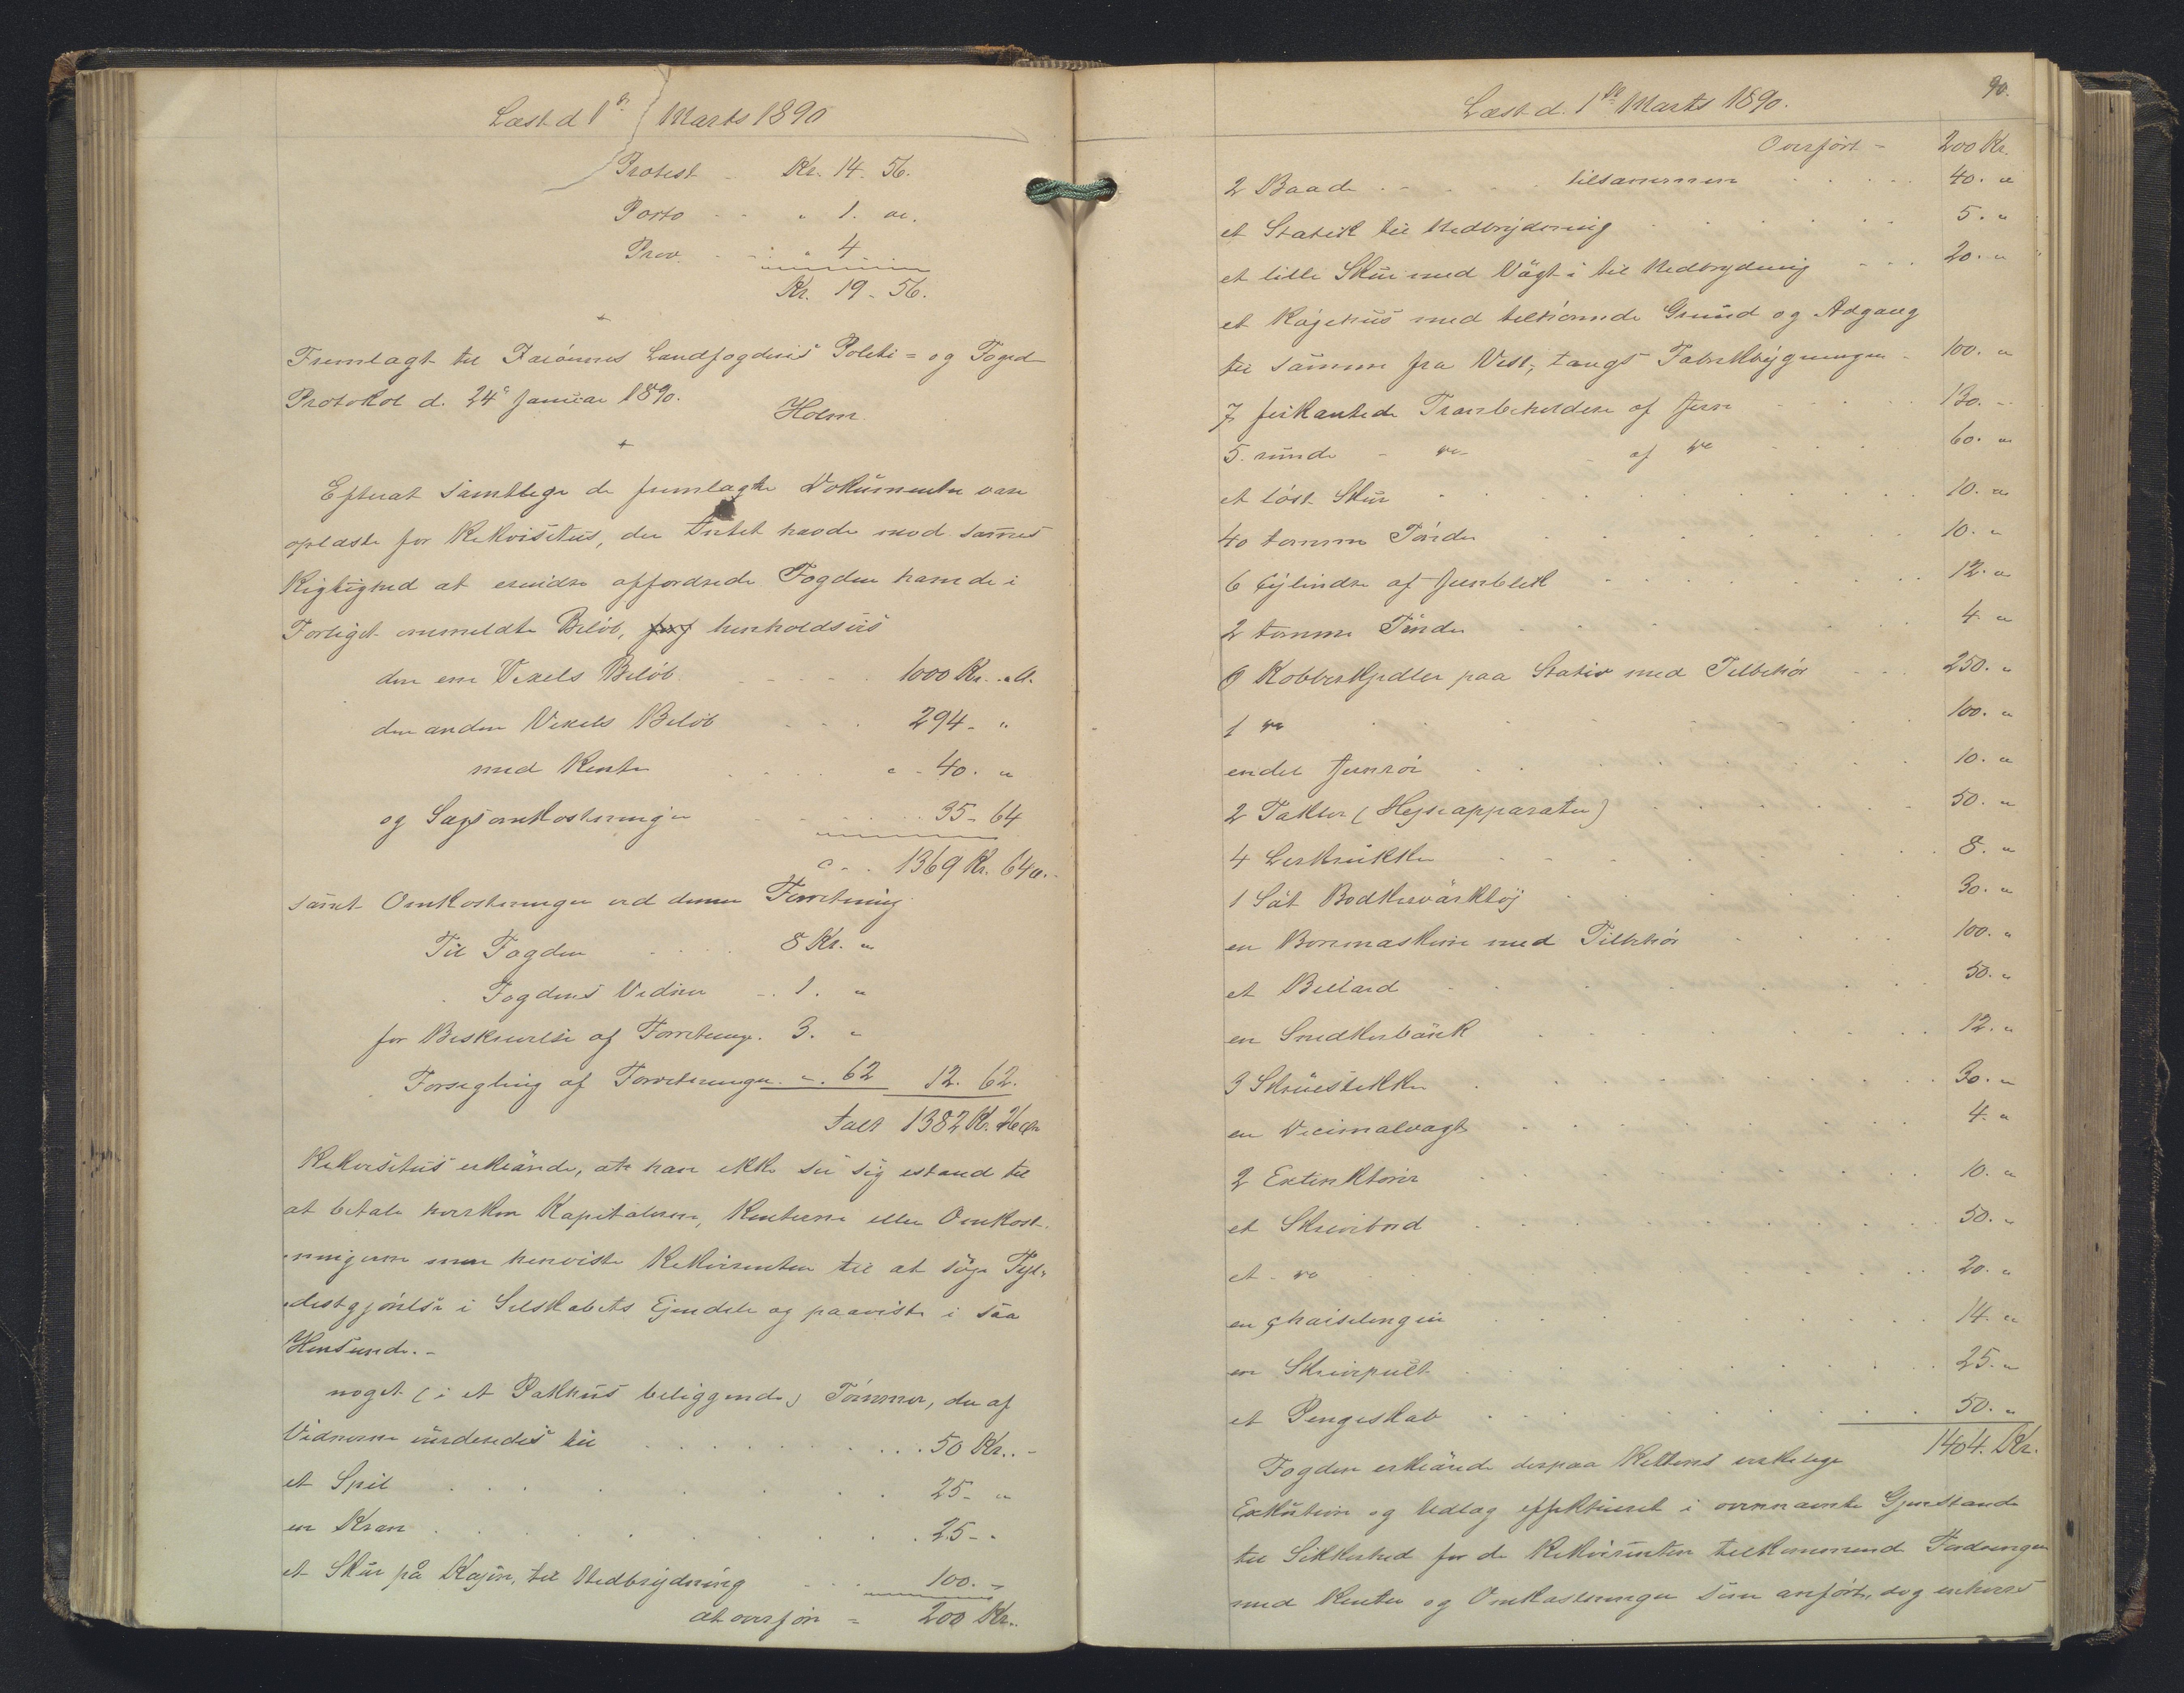 Læst d 1st Marts 1890
Protest - Kr. 14. 56.
Porto - - " 1. "
Prov. - - " 4 -
Kr. 19 - 56.
Fremlagt til Færöernes Landfogderis Politi= og Foged
Protokol d. 24de Januar 1890.
Holm.
Efterat samtlige de fremlagte Dokumenter vare
oplæste for Rekvisitus, der Intet havde mod sammes
Rigtighed at erindre opfordrede Fogden ham de i
Forliget ommeldte Belöb, henholdsvis
den ene Vexels Belöb - - - - 1000 Kr. " Ø.
den anden Vexels Belöb - - - 294 - "
med Rente - - - - " - 40. "
og Sagsomkostninger - - - - 35 - 64
- - 1369 Kr. 64 Ø.
samt Omkostninger ved denne Forretning
Til Fogden - - - 8 Kr. "
Fogdens Vidner - - 1. "
for Beskrivelse af Forretning. 3. "
Forsegling af Forretningen - ". 62 12. 62.
Ialt 1382 Kr. 26 Øre
Rekvisitus erklærede, at han ikke saa sig istand til
at betale hverken Kapitalerne, Renterne eller Omkost-
ningerne men henviste Rekvirenten til at söge Fyl-
destgjörelse i Selskabets Ejendele og paaviste i saa
Henseende. -
noget (i et Pakhus beliggende) Tömmer, der af
Vidnerne vurderedes til . . . . . . 50 Kr. -
et Spil . . . . . . . 25 - "
en Kran . . . . . . . 25 - "
et Skur på Kajen, til Nedbrydning . . . 100. -
at overföre = 200 Kr.
90.
Læst d. 1ste Marts 1890.
Overfört - 200 Kr.
2 Baade . - . . . tilsammen . . . . 40. "
et Stativ til Nedbrydning . . . . . 5. "
et lille Skur med Vægt i til Nedbrydning - - - 20. "
et Kogehus med tilhörende Grund og Adgang
til samme fra Vest, langs Fabrikbygningen - 100. "
7 firkantede Tranbeholdere af Jern - - - 130. -
5. runde - do - - af do - - - 60. "
et löst Skur . . . . . . . 10. "
40 tomme Tönder . . . . . . 10. "
6 Cylindre af Jernblik . . . . . 12. "
2 tomme Tönder . . . . . . 4 "
6 Kobberkjedler paa Stativ med Tilbehör . . . 250. "
1 do . . . . . . . 100. "
endel Jernrör . . . . . . 10. "
2 Taklier (Hejseapparater) . . . . . 50. "
4 Lerkrukker . . . . . . 8. "
1 Sæt Bödkerværktöj . . . . . 30. "
en Boremaskine med Tilbehör . . . . 100. "
et Billard . . . . . . . 50. "
en Snedkerbænk . . . . . . 12. "
3 Skruestikker . . . . . . 30. "
en Decimalvægt . . . . . . 4. "
2 Extinktörer . . . . . . 10. "
et Skrivebord . . . . . . 50. "
et - do . . . . . . . 20. "
en Chaiselongue . . . . . . 14. "
en Skrivepult . . . . . . 25. "
et Pengeskab . . . . . . 50. "
1404. Kr.
Fogden erklærede derpaa Rettens virkelige
Exekution og Udlæg effektueret i ovennævnte Gjenstande
til Sikkerhed for de Rekvirenten tilkommende Fordringer
med Renter og Omkostninger som anfört, dog enhvers